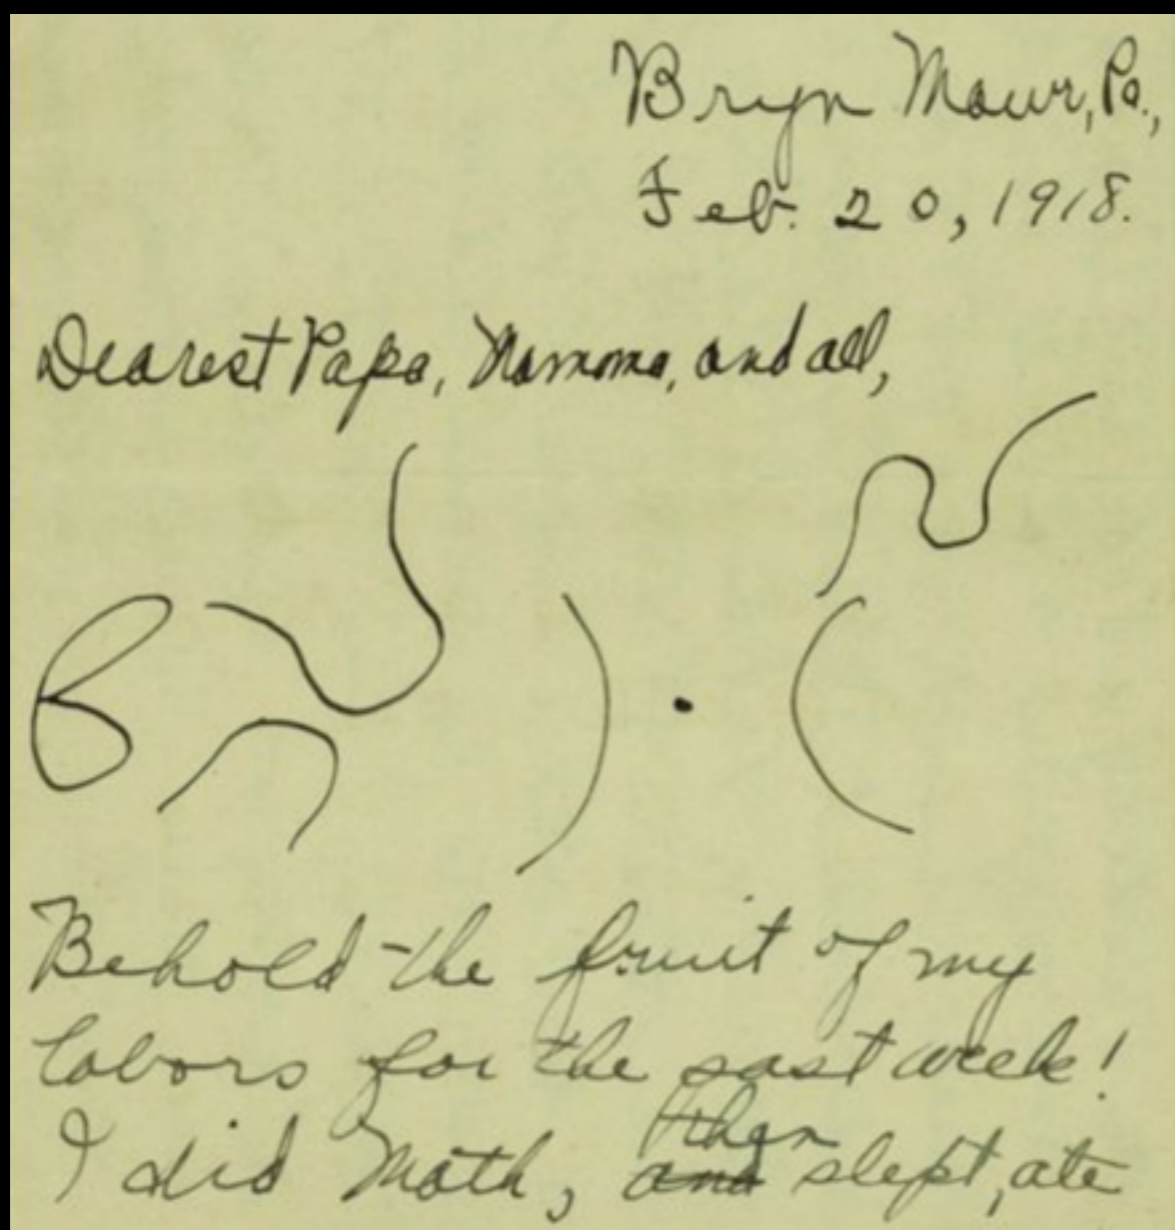 Bryn Mawr, Pa.,
Feb. 20, 1918.
Dearest Papa, Mamma, and all,
Behold the fruit of my
labors for the past week!
I did Math, then
and slept, ate